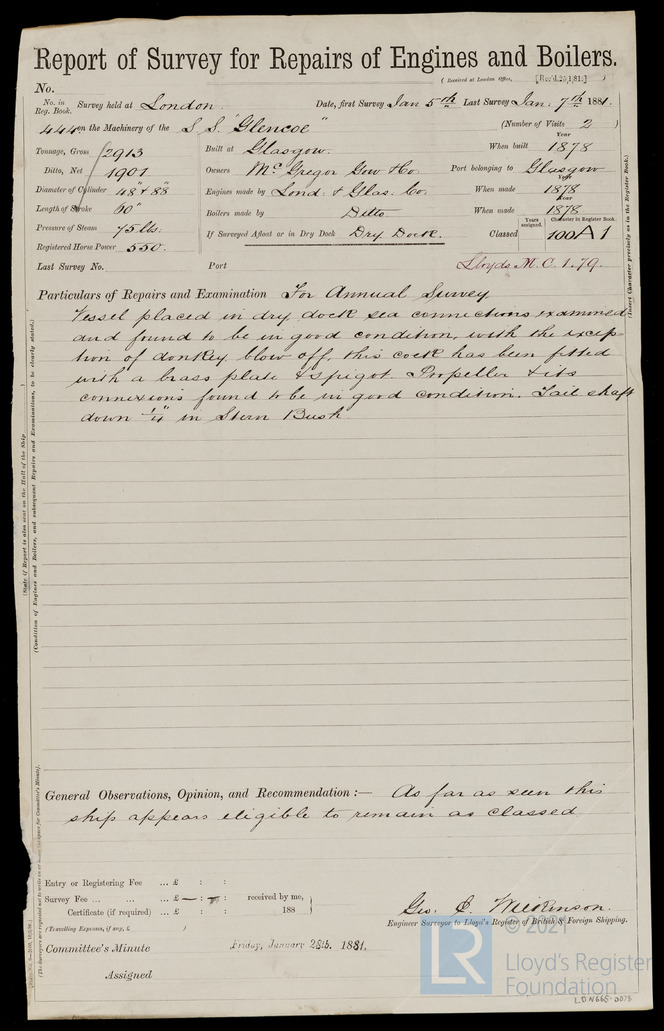 Report of Survey for Repairs of Engines and Boilers.
(Received at London Office,
No.
No. in Reg. Book. Survey held at London. Date, first Survey Jan 5th Last Survey Jan: 7th 1881.
444 on the Machinery of the S.S. "Glencoe" (Number of Visits 2 )
Tonnage, Gross 2913 Built at Glasgow. When built Year 1878
Ditto, Net 1901 Owners McGregor Gow & Co. Port belonging to Glasgow
Diameter of Cylinder 48" & 88" Engines made by Lond. & Glas. Co. When made Year 1878
Length of Stroke 60" Boilers made by Ditto When made Year 1878
Pressure of Steam 75 lbs. If Surveyed Afloat or in Dry Dock Dry Dock. Classed Years assigned. Character in Register Book. 100A1
Registered Horse Power 550.
Last Survey No. Port Lloyds M.C. 1.79.
Particulars of Repairs and Examination For Annual Survey
Vessel placed in dry dock sea connections examined
and found to be in good condition, with the excep-
tion of donkey blow off, this cock has been fitted
with a brass plate & spigot. Propeller & its
connexions found to be in good condition. Tail shaft
down 1/4" in Stern Bush
General Observations, Opinion, and Recommendation :— As far as seen this
ship appears eligible to remain as classed
Entry or Registering Fee ... £ : :
Survey Fee ... ... ... £ — : — : received by me,
Certificate (if required) ... £ : : 188
(Travelling Expenses, if any, £ )
Geo. C. Wilkinson.
Engineer Surveyor to Lloyd's Register of British & Foreign Shipping.
Committee's Minute Friday, January 28th, 1881.
Assigned
(State if Report is also sent on the Hull of the Ship )
(Condition of Engines and Boilers, and subsequent Repairs and Examinations, to be clearly stated.)
(Insert Character precisely as in the Register Book.)
© 2021
LR
Lloyd's Register
Foundation
LDN665-0078